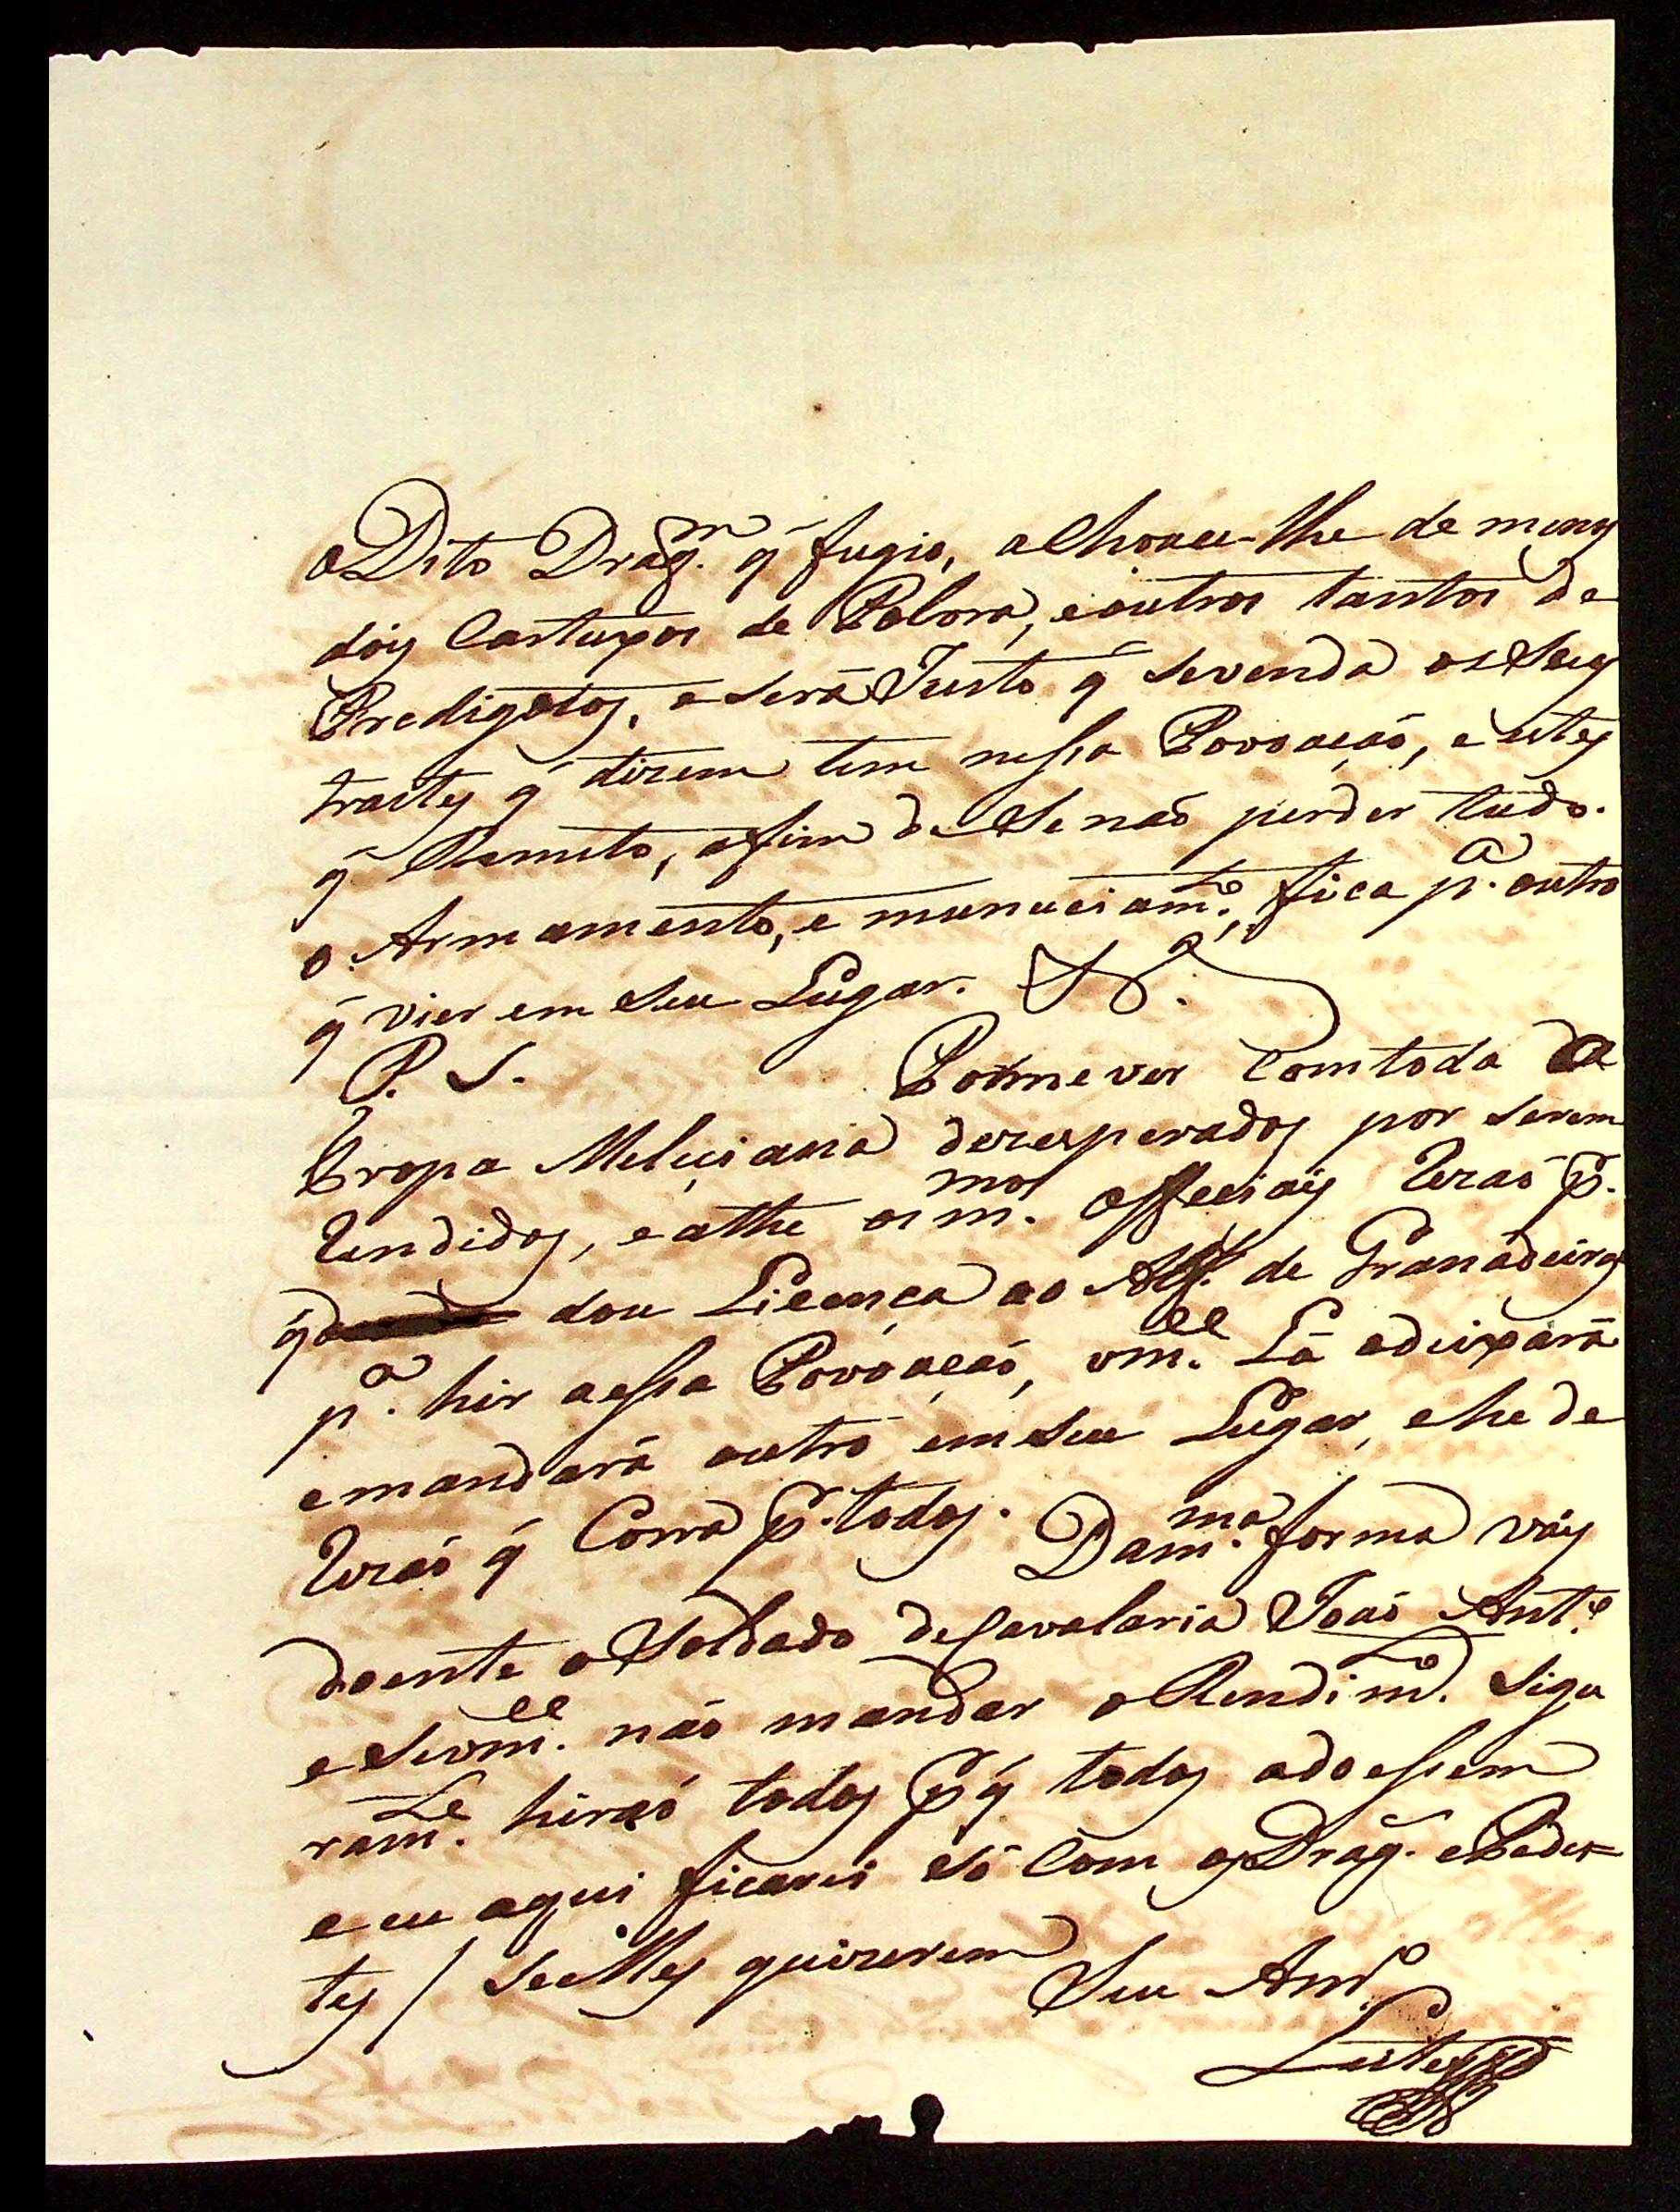 o Dito Drag.m q̃ fugio, achouce-lhe de menȳ
doȳ Cartuxos de Polvora, e outros tantos de
Predigotoȳ, e será Justo q̃ sevenda os Seuȳ
trasteȳ q̃ dizem tem nessa Povoação, e esteȳ
q̃ Remeto, afim de Se naõ perder tudo.
o Armamento, e municiam.to, fica p.a outro
q̃ vier em Seu Lugar.
P. S. Podme ver Comtoda a
Tropa Meliciana dezesperadoȳ por serem
Rendidoȳ, e athe os m.mos officiaiȳ
dou Licença ao Alf.s de Granadeiroȳ
p.a hir aessa Povoação, vm.ce Lá odeixará
emandará outro em seu Lugar, ehe de
Rezaõ q̃ Corra p.r todoȳ. Dam.ma forma vaȳ
doente o Soldado deCavalaria Joaõ Ant.o
e Sevm.ce naõ mandar o Rendim.to Sigu
ram.te hiraõ todoȳ p.q̃ todoȳ adoessem
e eu aqui ficarei só Com oȳ Drag. e Pedes=
teȳ / Se elleȳ quizerem
Seu Am.o